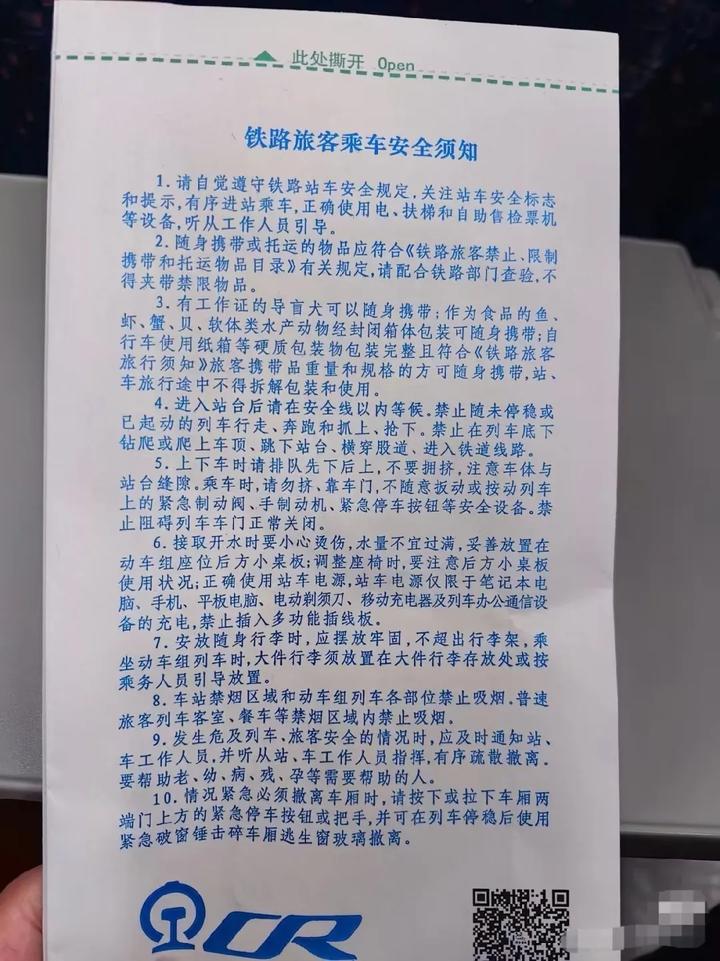 此处撕开 Open
铁路旅客乘车安全须知
1.请自觉遵守铁路站车安全规定,关注站车安全标志
和提示,有序进站乘车,正确使用电、扶梯和自助售检票机
等设备,听从工作人员引导。
2.随身携带或托运的物品应符合《铁路旅客禁止、限制
携带和托运物品目录》有关规定,请配合铁路部门查验,不
得夹带禁限物品。
3.有工作证的导盲犬可以随身携带;作为食品的鱼、
虾、蟹、贝、软体类水产动物经封闭箱体包装可随身携带;自
行车使用纸箱等硬质包装物包装完整且符合《铁路旅客
旅行须知》旅客携带品重量和规格的方可随身携带,站、
车旅行途中不得拆解包装和使用。
4.进入站台后请在安全线以内等候。禁止随未停稳或
已起动的列车行走、奔跑和抓上、抢下。禁止在列车底下
钻爬或爬上车顶、跳下站台、横穿股道、进入铁道线路。
5.上下车时请排队先下后上,不要拥挤,注意车体与
站台缝隙。乘车时,请勿挤、靠车门,不随意扳动或按动列车
上的紧急制动阀、手制动机、紧急停车按钮等安全设备。禁
止阻碍列车车门正常关闭。
6.接取开水时要小心烫伤,水量不宜过满,妥善放置在
动车组座位后方小桌板;调整座椅时,要注意后方小桌板
使用状况;正确使用站车电源,站车电源仅限于笔记本电
脑、手机、平板电脑、电动剃须刀、移动充电器及列车办公通信设
备的充电,禁止插入多功能插线板。
7.安放随身行李时,应摆放牢固,不超出行李架,乘
坐动车组列车时,大件行李须放置在大件行李存放处或按
乘务人员引导放置。
8.车站禁烟区域和动车组列车各部位禁止吸烟。普速
旅客列车客室、餐车等禁烟区域内禁止吸烟。
9.发生危及列车、旅客安全的情况时,应及时通知站、
车工作人员,并听从站、车工作人员指挥,有序疏散撤离。
要帮助老、幼、病、残、孕等需要帮助的人。
10.情况紧急必须撤离车厢时,请按下或拉下车厢两
端门上方的紧急停车按钮或把手,并可在列车停稳后使用
紧急破窗锤击碎车厢逃生窗玻璃撤离。
CR